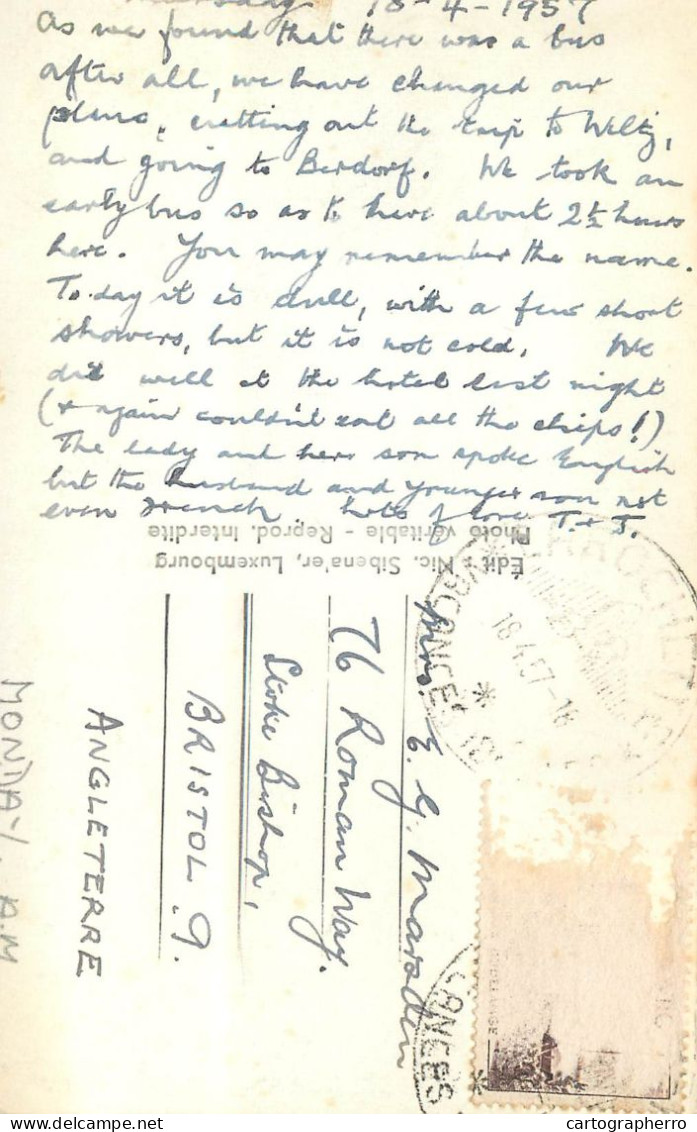 Thursday 18-4-1957
As we found that there was a bus
after all, we have changed our
plans, cutting out the trip to Wiltz,
and going to Berdorf. We took an
early bus so as to have about 2½ hours
here. You may remember the name.
To-day it is dull, with a few short
showers, but it is not cold. We
did well at the hotel last night
(& again couldn't eat all the chips!)
The lady and her son spoke English
but the husband and younger son not
even French. Lots of love T. + J.
Edit: Nic. Sibenaler, Luxembourg
Photo véritable - Reprod. Interdite
Mrs. E. G. Marsden
76 Roman Way.
Stoke Bishop,
BRISTOL. 9.
ANGLETERRE
MONDAY. A.M
LAROCHETTE
VACANCES
18.4.57-16
CANCES
cartographerro
delcampe.net